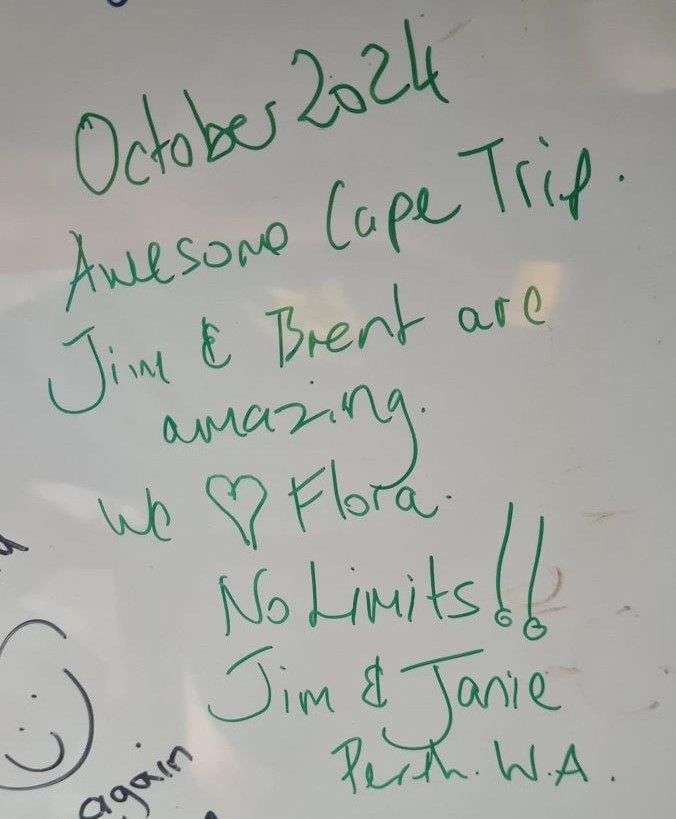 October 2024
Awesome Cape Trip.
Jim & Brent are
amazing.
We ♡ Flora.
No Limits!!
Jim & Janie
Perth. W.A.
again